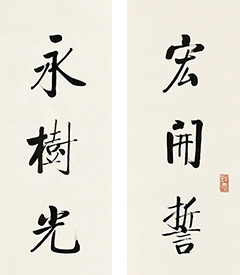 宏開誓
永樹光